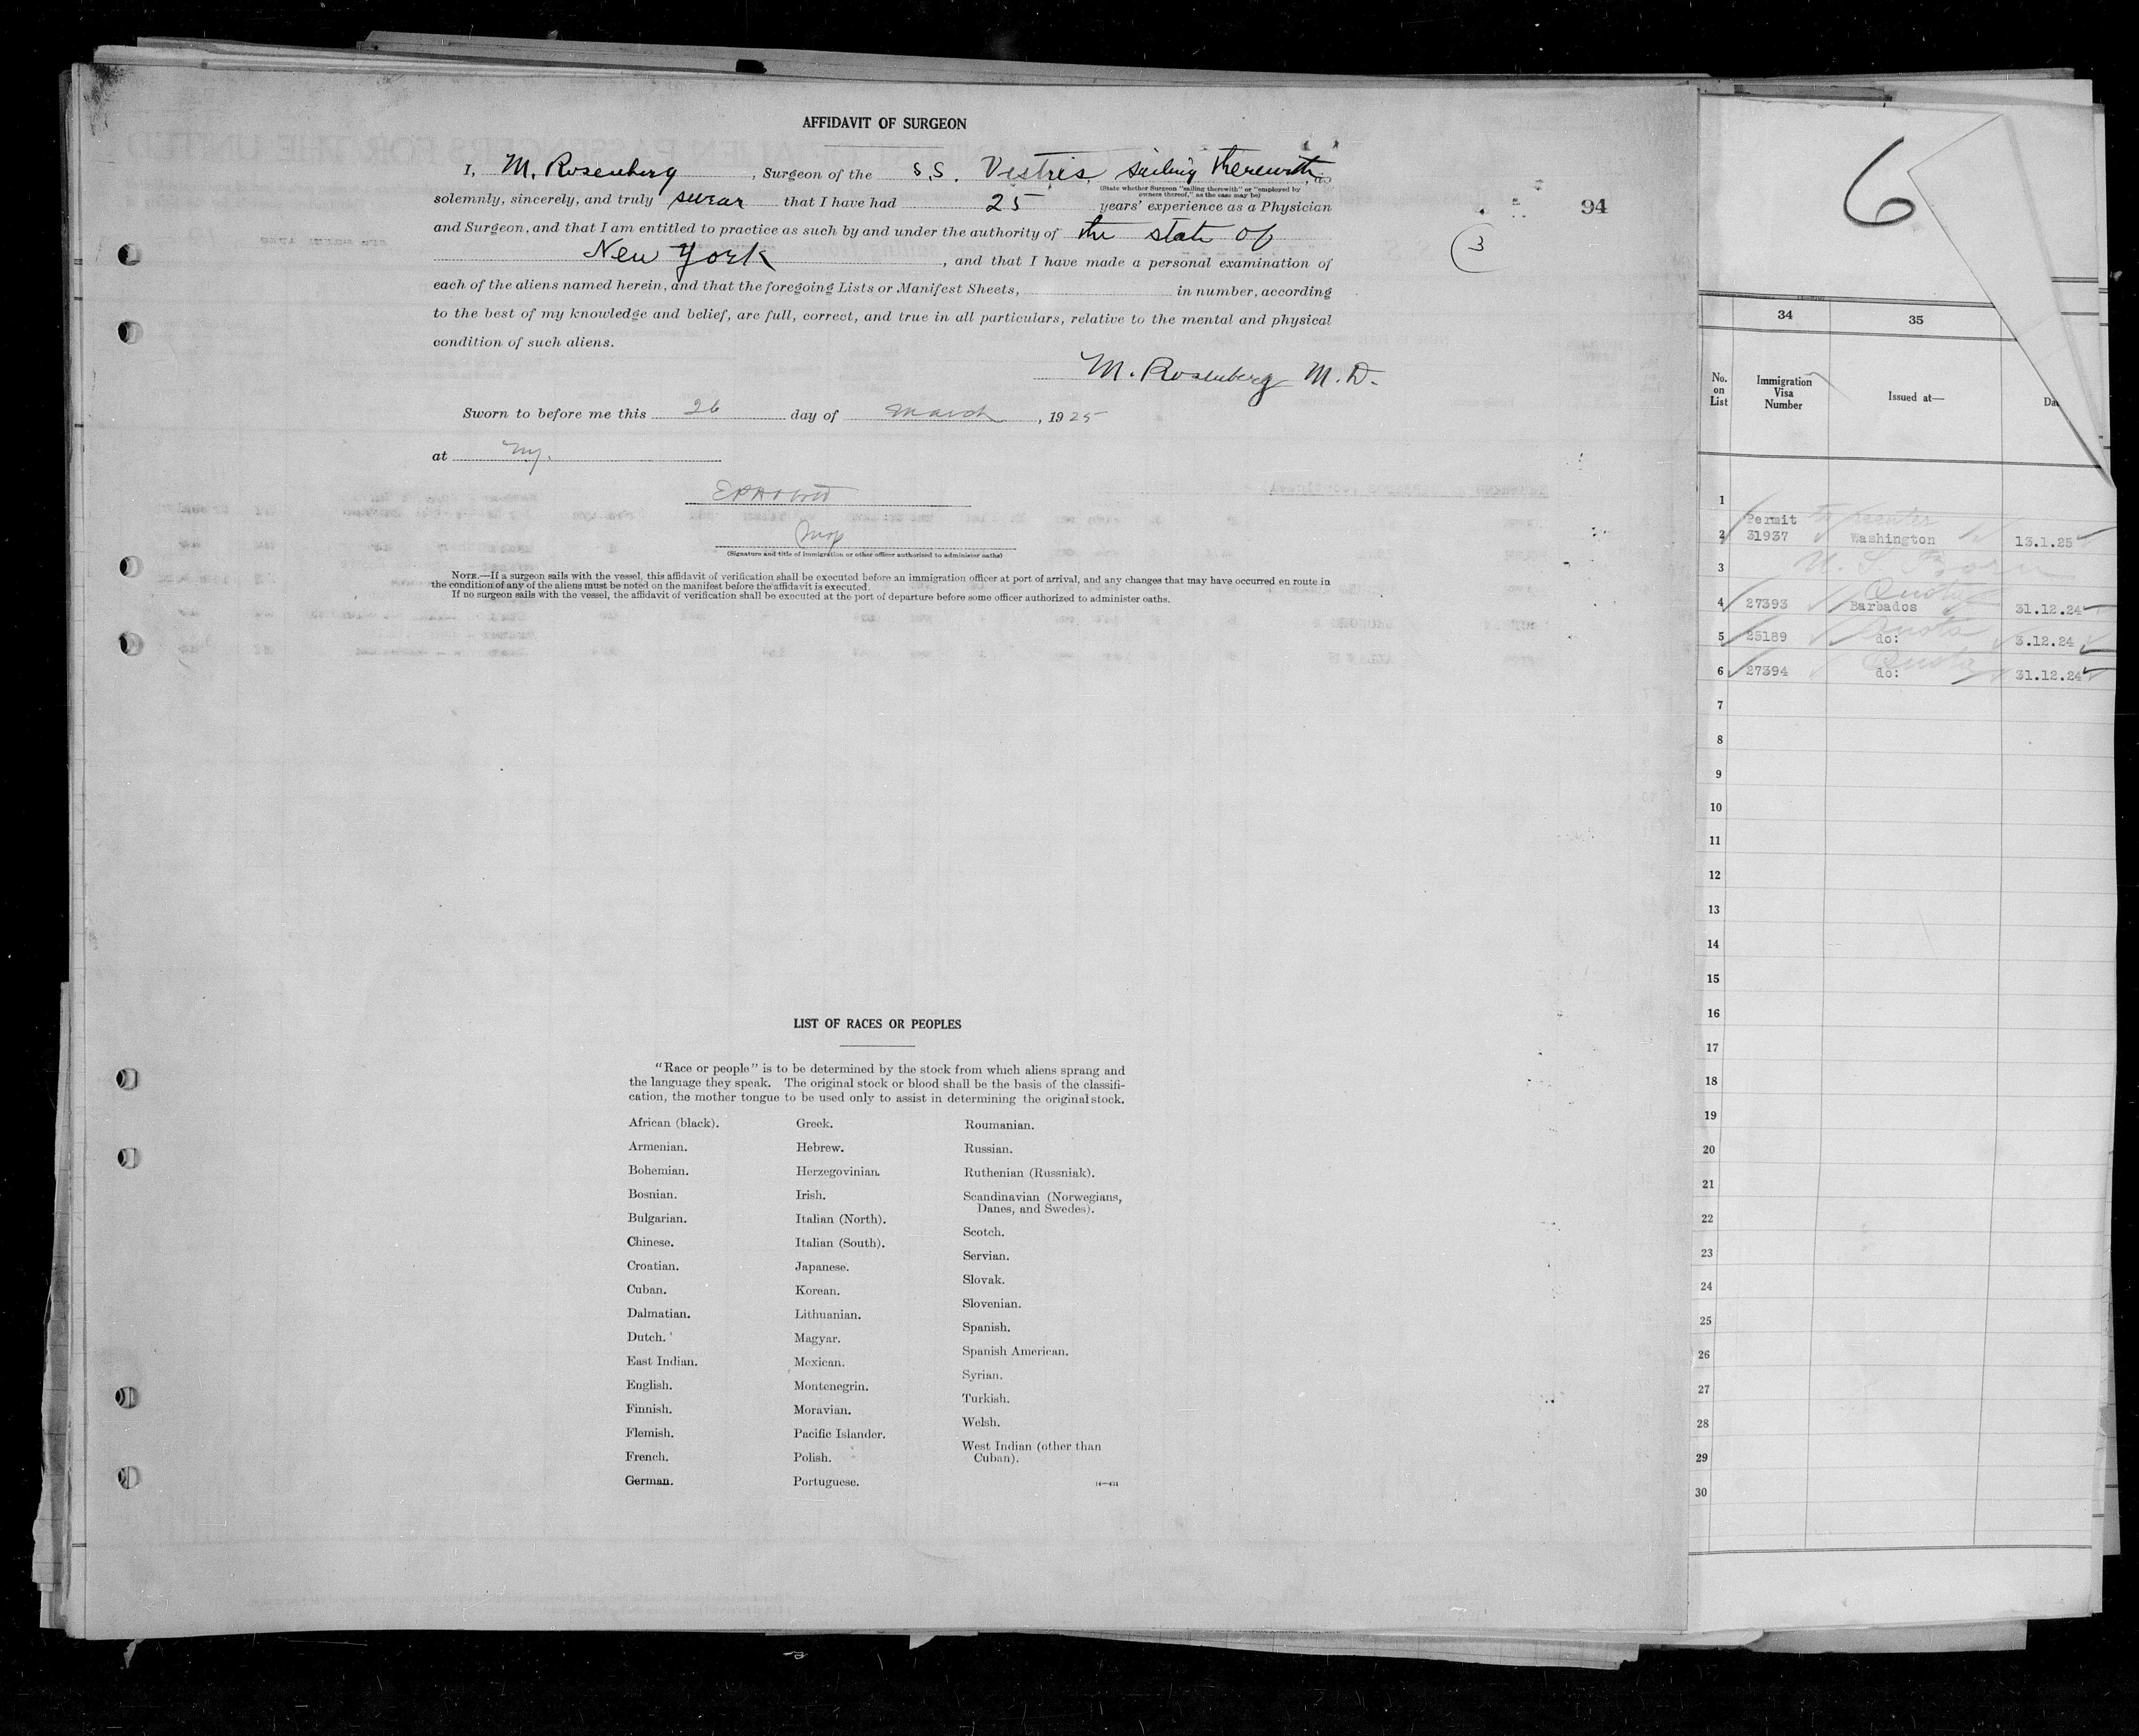 AFFIDAVIT OF SURGEON
I, M. Rosenberg, Surgeon of the S.S. Vestris, sailing therewith, do
(State whether Surgeon "sailing therewith" or "employed by
owners thereof," as the case may be)
solemnly, sincerely, and truly swear that I have had 25 years' experience as a Physician
and Surgeon, and that I am entitled to practice as such by and under the authority of the state of
New York, and that I have made a personal examination of
each of the aliens named herein, and that the foregoing Lists or Manifest Sheets, in number, according
to the best of my knowledge and belief, are full, correct, and true in all particulars, relative to the mental and physical
condition of such aliens.
M. Rosenberg M.D.
Sworn to before me this 26 day of March, 1925
at NY.
(Signature and title of immigration or other officer authorized to administer oaths)
NOTE.—If a surgeon sails with the vessel, this affidavit of verification shall be executed before an immigration officer at port of arrival, and any changes that may have occurred en route in
the condition of any of the aliens must be noted on the manifest before the affidavit is executed.
If no surgeon sails with the vessel, the affidavit of verification shall be executed at the port of departure before some officer authorized to administer oaths.
94
3
LIST OF RACES OR PEOPLES
"Race or people" is to be determined by the stock from which aliens sprang and
the language they speak. The original stock or blood shall be the basis of the classifi-
cation, the mother tongue to be used only to assist in determining the original stock.
African (black).
Armenian.
Bohemian.
Bosnian.
Bulgarian.
Chinese.
Croatian.
Cuban.
Dalmatian.
Dutch.
East Indian.
English.
Finnish.
Flemish.
French.
German.
Greek.
Hebrew.
Herzegovinian.
Irish.
Italian (North).
Italian (South).
Japanese.
Korean.
Lithuanian.
Magyar.
Mexican.
Montenegrin.
Moravian.
Pacific Islander.
Polish.
Portuguese.
Roumanian.
Russian.
Ruthenian (Russniak).
Scandinavian (Norwegians,
Danes, and Swedes).
Scotch.
Servian.
Slovak.
Slovenian.
Spanish.
Spanish American.
Syrian.
Turkish.
Welsh.
West Indian (other than
Cuban).
6
34 35
No. on List Immigration Visa Number Issued at—
1
Permit to reenter
2 31937 Washington 13.1.25
3 U. S. Born
Quota
4 27393 Barbados 31.12.24
5 25189 do: Quota 3.12.24
6 27394 do: Quota 31.12.24
7
8
9
10
11
12
13
14
15
16
17
18
19
20
21
22
23
24
25
26
27
28
29
30